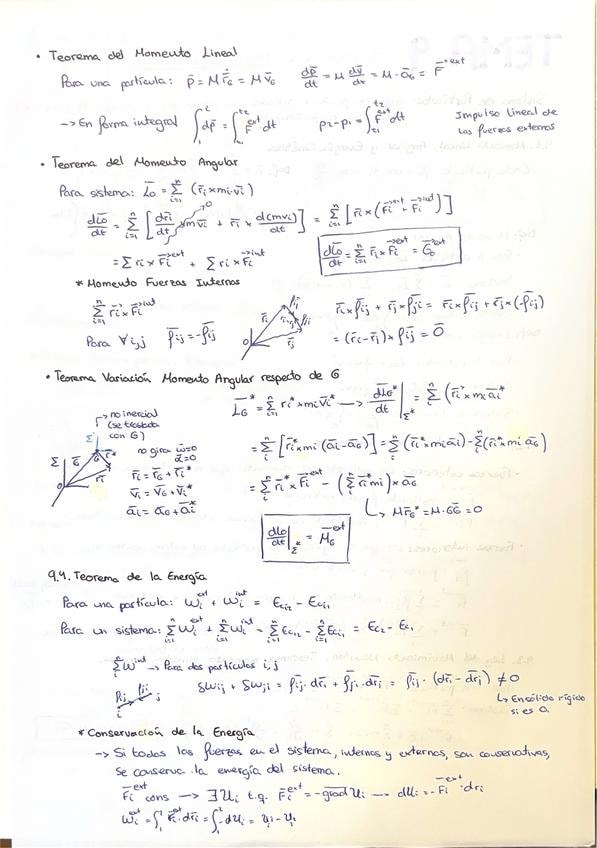 • Teorema del Momento Lineal
Para una partícula: p̄ = M ṙ̄_G = M v̄_G   dp̄/dt = M dv̄/dt = M·ā_G = F̄^ext
→ En forma integral ∫₁² dp̄ = ∫_{t₁}^{t₂} F̄^ext dt   p₂-p₁ = ∫_{t₁}^{t₂} F̄^ext dt   Impulso lineal de
las fuerzas externas
• Teorema del Momento Angular
Para sistema: L̄o = Σ_{i=1}^n (r̄i × mi·v̄i)
dL̄o/dt = Σ_{i=1}^n [dr̄i/dt × mv̄i → 0 + r̄i × d(mvi)/dt] = Σ_{i=1}^n [r̄i × (F̄i^ext + F̄i^int)]
= Σ ri × F̄i^ext + Σ ri × F̄i^int   dL̄o/dt = Σ_{i=1}^n r̄i × F̄i^ext = Ḡo^ext
* Momento Fuerzas Internas
Σ_{i=1}^n r̄i × F̄i^int   r̄i × f̄ij + r̄j × f̄ji = r̄i × f̄ij + r̄j × (-f̄ij)
Para ∀ i,j   f̄ij = -f̄ij   = (r̄i - r̄j) × f̄ij = 0̄
• Teorema Variación Momento Angular respecto de G
L̄_G* = Σ_{i=1}^n ri* × mi v̄i* → dL̄_G*/dt |_Σ* = Σ_{i=1}^n (r̄i* × mi āi*
→ no inercial
(se traslada
con G)
no gira ω̄=0
ᾱ=0
= Σ_{i=1}^n [r̄i* × mi (āi - ā_G)] = Σ_{i=1}^n (r̄i* × mi āi) - Σ_{i=1}^n (r̄i* × mi ā_G)
r̄i = r̄_G + r̄i*
v̄i = v̄_G + v̄i*
āi = ā_G + āi*
= Σ_{i=1}^n r̄i* × F̄i^ext - (Σ_{i=1}^n r̄i* mi) × ā_G
↳ M r̄_G* = M·GG = 0
dLo/dt |_Σ* = M̄_G^ext
9.4. Teorema de la Energía
Para una partícula: Wi^ext + Wi^int = Eci₂ - Eci₁
Para un sistema: Σ_{i=1}^n Wi^ext + Σ_{i=1}^n Wi^int = Σ_{i=1}^n Eci₂ - Σ_{i=1}^n Eci₁ = Ec₂ - Ec₁
Σ W^int → Para dos partículas i,j
δWij + δWji = f̄ij · dr̄i + f̄ji · dr̄j = f̄ij · (dr̄i - dr̄j) ≠ 0
↳ En sólido rígido
si es 0.
* Conservación de la Energía
→ Si todas las fuerzas en el sistema, internas y externas, son conservativas,
se conserva la energía del sistema.
F̄i^ext cons → ∃ Ui t.q. F̄i^ext = -grad Ui → dUi = -F̄i^ext · dri
Wi^ext = ∫₁² F̄i·dr̄i = ∫₁² -dUi = Ui - Ui